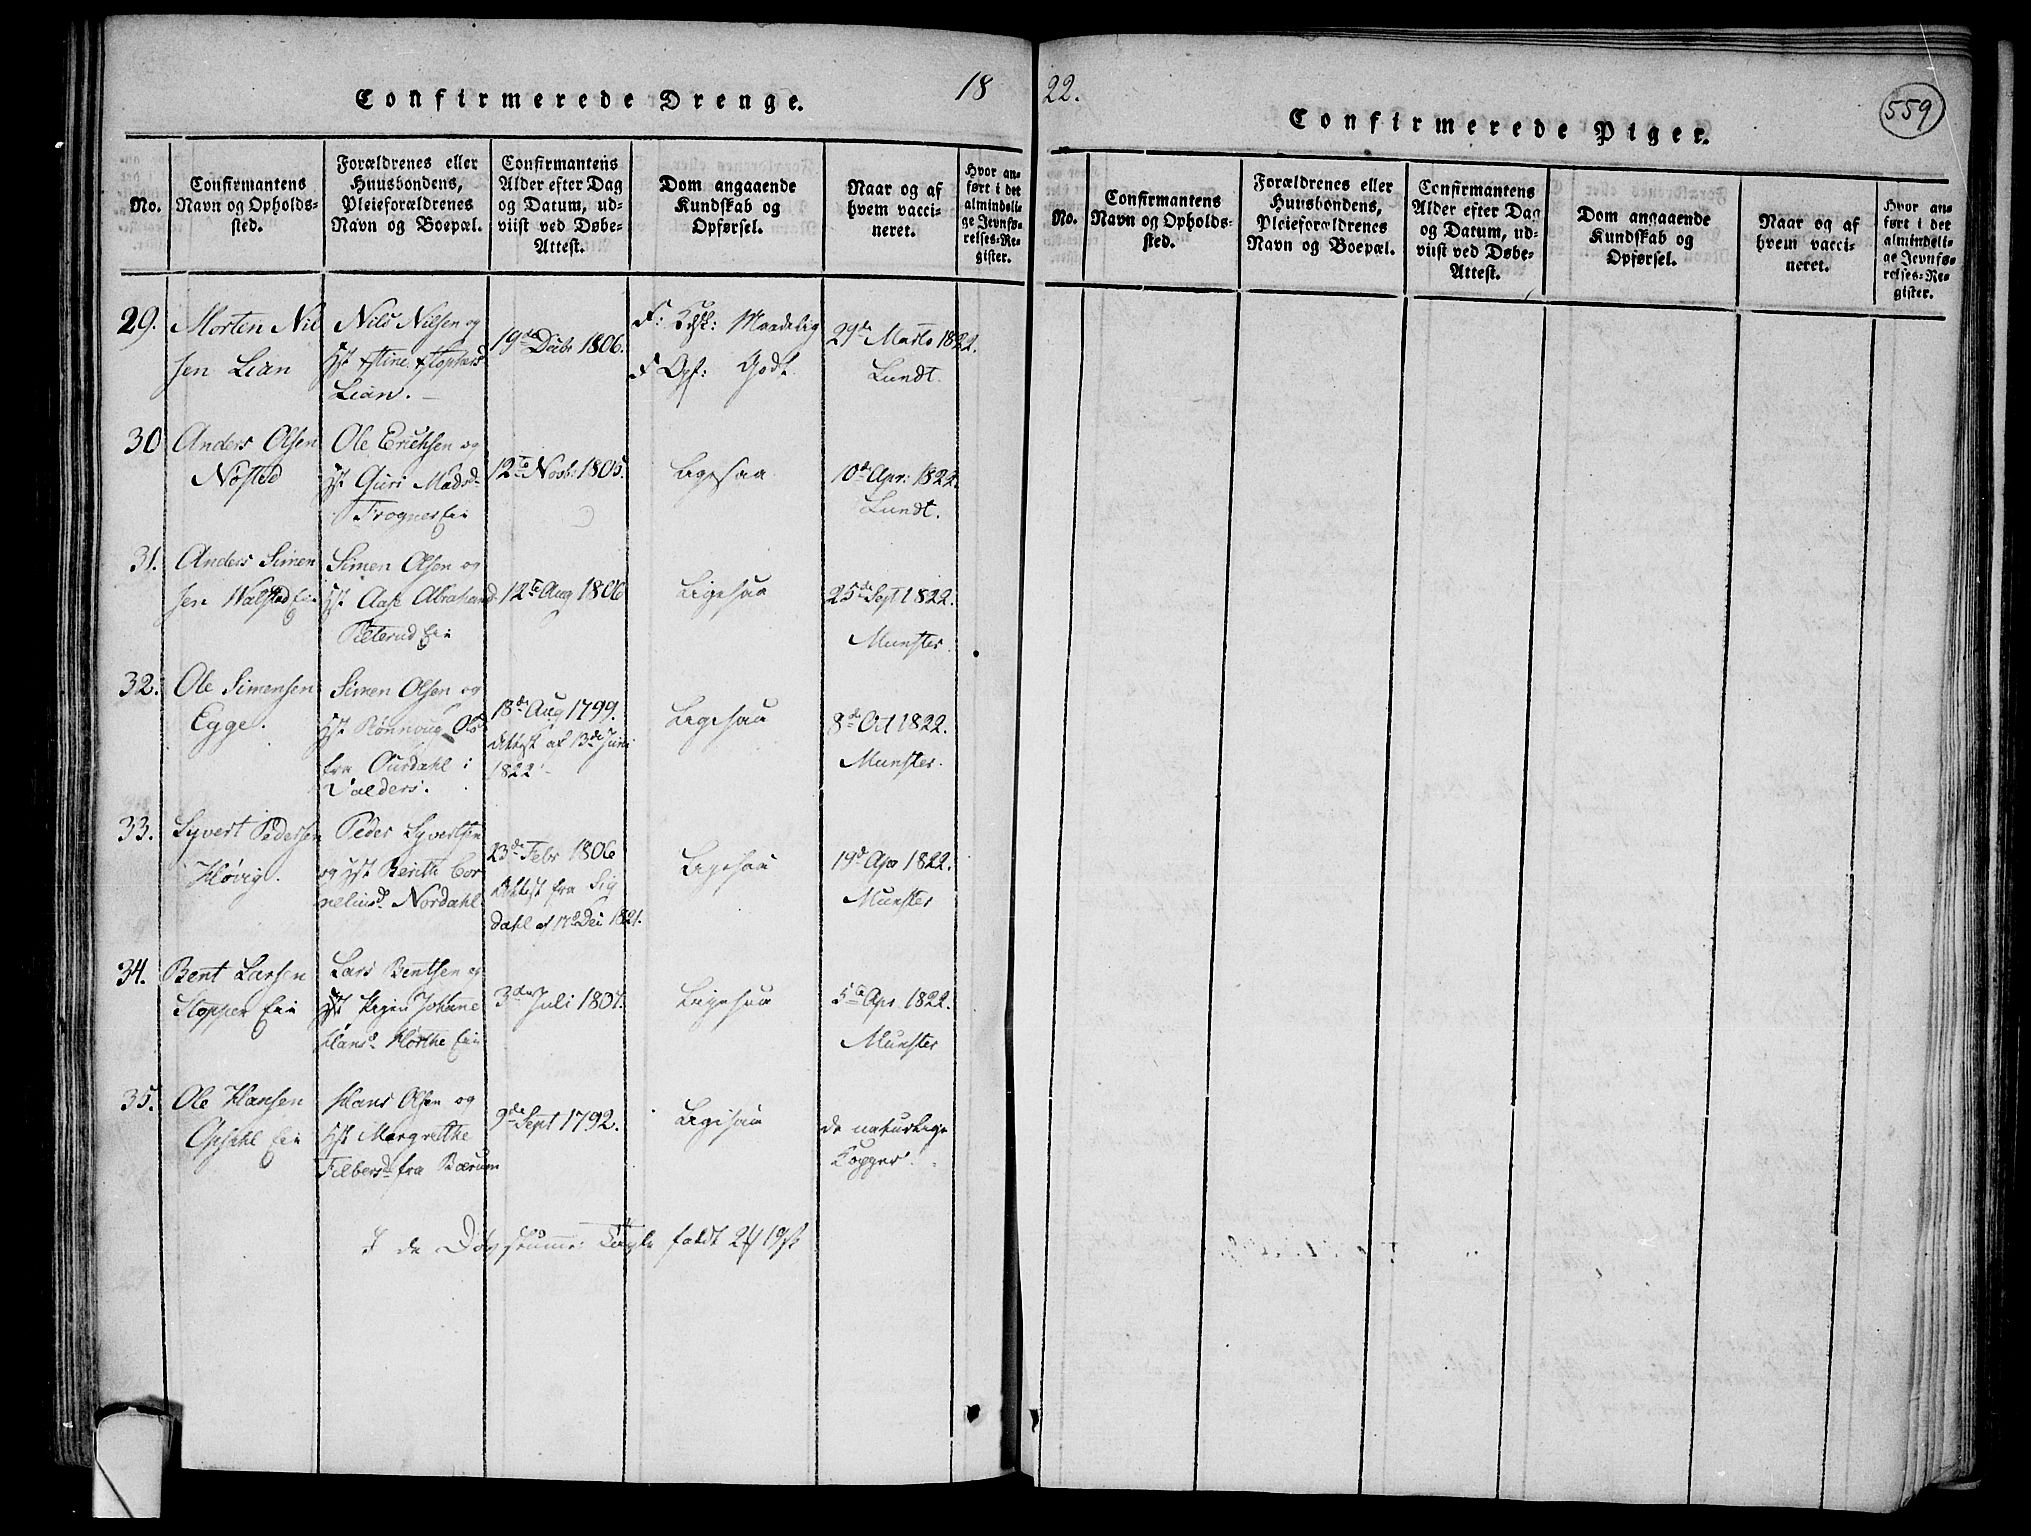 18
22.
559
Confirmerede Drenge.
No.
Confirmantens
Navn og Opholds-
sted.
Forældrenes eller
Huusbondens,
Pleieforældrenes
Navn og Boepæl.
Confirmantens
Alder efter Dag
og Datum, ud-
viist ved Døbe-
Attest.
Dom angaaende
Kundskab og
Opførsel.
Naar og af
hvem vacci-
neret.
Hvor an-
ført i det
almindeli-
ge Jevnfø-
relses-Re-
gister.
29.
Morten Nil
sen Lian
Nils Nilsen og
Lian.
19de Decbr 1806.
F: Kdsk: Maadelig
F Opf: Godt
29de Marts 1822.
Lundt.
30
Anders Olsen
Nøsted
Ole Erichsen og
Guri Madsd
Trogner Eie
12te Novbr 1805.
Ligesaa
10de Apr: 1822.
Lundt.
31.
Anders Simen
sen Walstad Eie
Simen Olsen og
Aase Abrahamd.
Eie
12te Aug 1806
Ligesaa
25de Sept 1822.
Munster.
32.
Ole Simensen
Egge.
Simen Olsen og
Rønnoug Olsd
fra Ourdahl i
Valders.
18de Aug 1799.
Attest af 13de Juni
1822
Ligesaa
8de Oct 1822.
Munster.
33.
Syvert Pedersen
Høvig.
Peder Syvertsen
og Berithe Cor
neliusd. Nordahl
23de Febr 1806
Attest fra Sig
dahl af 17de Dec 1821.
Ligesaa
19de Apr 1822.
Munster
34.
Bent Larsen
Stoppen Eie
Lars Bentsen og
Johanne
Hansd. Hørthe Eie
3die Juli 1807.
Ligesaa
5te Apr. 1822.
Munster
35.
Ole Hansen
Opsahl Eie
Hans Olsen og
Margrethe
fra Bærum
9de Sept 1792.
Ligesaa
de naturlige
Kopper.
Confirmerede Piger.
No.
Confirmantens
Navn og Opholds-
sted.
Forældrenes eller
Huusbondens,
Pleieforældrenes
Navn og Boepæl.
Confirmantens
Alder efter Dag
og Datum, ud-
viist ved Døbe-
Attest.
Dom angaaende
Kundskab og
Opførsel.
Naar og af
hvem vacci-
neret.
Hvor an-
ført i det
almindeli-
ge Jevnfø-
relses-Re-
gister.